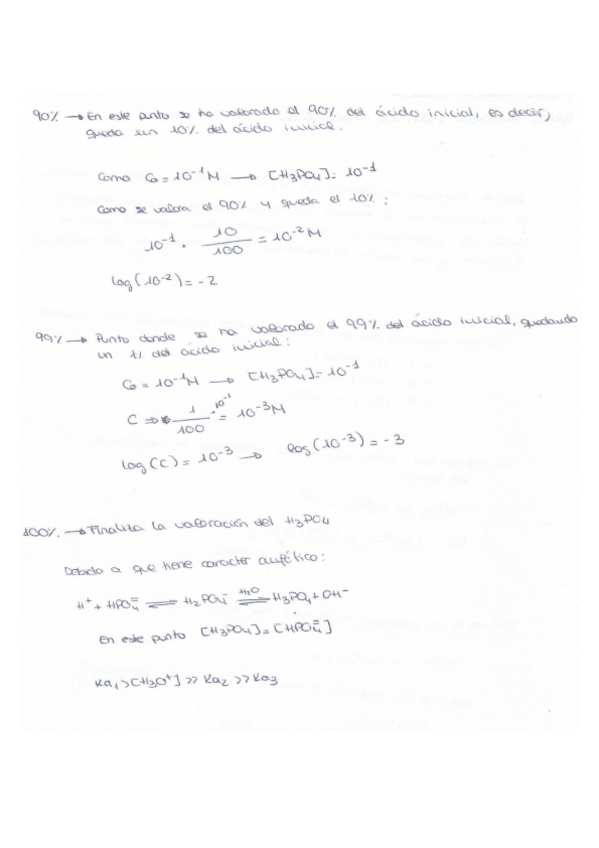 90% → En este punto se ha valorado el 90% del ácido inicial, es decir,
queda un 10% del ácido inicial.
Como C₀ = 10⁻¹M → [H₃PO₄] = 10⁻¹
Como se valora el 90% y queda el 10%:
10⁻¹ · 10/100 = 10⁻²M
log(10⁻²) = -2
99% → Punto donde se ha valorado el 99% del ácido inicial, quedando
un 1% del ácido inicial:
C₀ = 10⁻¹M → [H₃PO₄] = 10⁻¹
C ⇒ 1/100 · 10⁻¹ = 10⁻³M
log(C) = 10⁻³ → log(10⁻³) = -3
100% → Finaliza la valoración del H₃PO4
Debido a que tiene caracter anfótico:
H⁺ + HPO₄⁼ ⇌ H₂PO₄⁻ ⇌ H₂O H₃PO₄ + OH⁻
En este punto [H₃PO₄] = [HPO₄⁼]
Ka₁ > [H₃O⁺] >> Ka₂ >> Ka₃